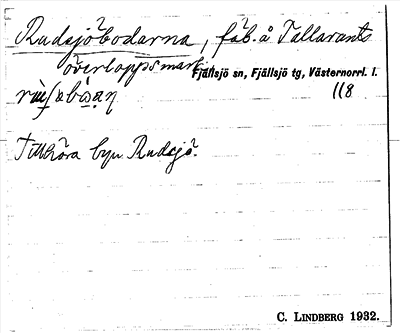 Rudsjöbodarna, fäb. å Tallarants
överloppsmark.
Fjällsjö sn, Fjällsjö tg, Västernorrl. l.
118
Tillhöra byn Rudsjö.
C. LINDBERG 1932.